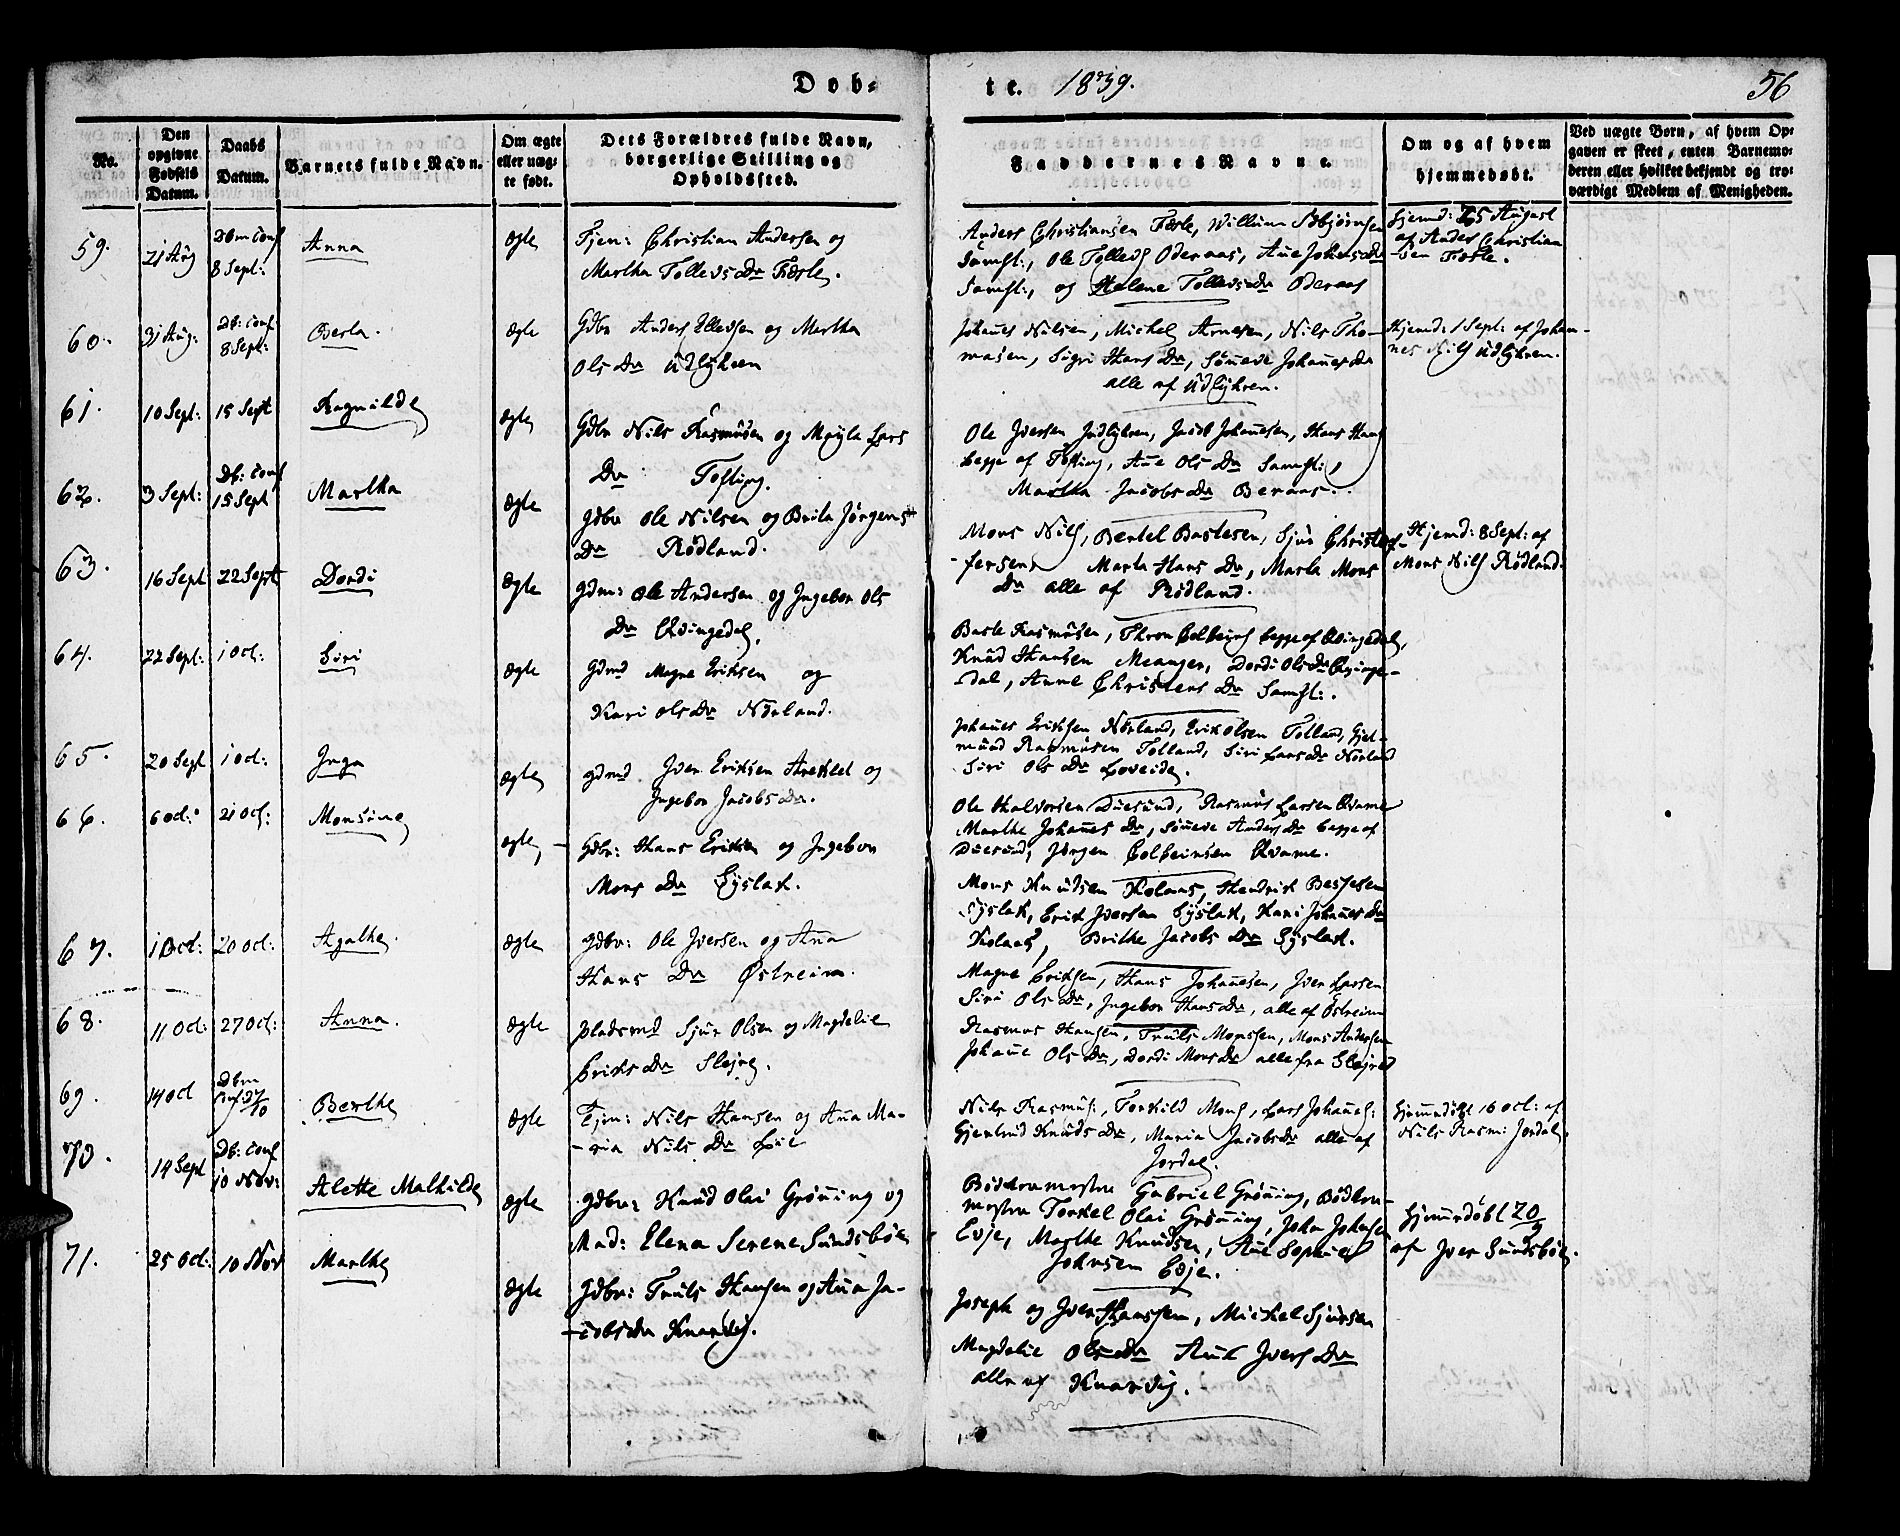 Døb-
te. 1839.
56
No.
Den opgivne Fødsels Datum.
Daabs Datum.
Barnets fulde Navn.
Om ægte eller uægte født.
Dets Forældres fulde Navn, borgerlige Stilling og Opholdssted.
Faddernes Navne.
Om og af hvem hjemmedøbt.
Ved uægte Børn, af hvem Opgaven er skeet, enten Barnemoderen eller hvilket bekjendt og troværdigt Medlem af Menigheden.
59. 21 Aug Dbm Conf 8 Sept: Anna Ægte
Tjen: Christian Andersen og
Martha Tollevs Dr Fæste.
Anders Christiansen Fæste, Willum
Samst:, Ole Tollevs Oderaas, Ane Johans Dr
Samst:, og Helene Tollevs Dr Oderaas
Hjemd: 25 August
af Anders Christian
-sen Fæste.
60. 31 Aug: Db: Conf: 8 Sept: Berta. Ægte
Gdbr Anders Ellevsen og Martha
Ols Dr Udlykren
Johanes Nilsen, Michel Arnesen, Nils Tho-
masen, Sigri Hans Dr, Søneve Johanes Dr
alle af Udlykren.
Hjemd: 1 Sept: af Johan-
nes Nils Udlykren.
61. 10 Sept: 15 Sept Ragnilde Ægte
Gdbr Nils Rasmusen og Lars
Dr Tofting.
Ole Iversen Indlykren, Jacob Johanesen, Hans Hans
begge af Tofting, Ane Ols Dr Samst:,
Martha Jacobs Dr Beraas.
62. 3 Sept: Db: Conf 15 Sept Martha Ægte
Gdbr Ole Nilsen og Brita Jørgens
Dr Rødland.
Mons Nils, Bertel Bastesen, Sjur Christof-
-fersen, Marta Hans Dr, Marta Mons
Dr alle af Rødland.
Hjemd: 8 Sept: af
Mons Nils Rødland.
63. 16 Sept 22 Sept Dordi Ægte
Gdm: Ole Andersen og Ingebor Ols
Dr Qvingedal,
Baste Rasmusen, Thron Colbeins begge af Qvingedal,
Knud Hansen Meanger, Dordi Ols Dr Qvinge-
-dal, Anne Christens Dr Samst:.
64. 22 Sept: 1 Oct: Siri Ægte
Gdmd Magne Eriksen og
Kari Ols Dr Nørland.
Johanes Eriksen Nørland, Erik Olsen Tolland, Gjel-
mund Rasmusen Tolland, Siri Lars Dr Nørland
Siri Ols Dr Loveide.
65. 20 Sept 1 Oct: Inga Ægte
Gdmd Iver Eriksen og
Ingebor Jacobs Dr.
Ole Halvorsen Duesund, Rasmus Larsen Qvame
Marthe Johanes Dr, Søneve Anders Dr begge af
Duesund, Jørgen Colbeinsen Qvame.
66. 6 Oct: 21 Oct: Monsine Ægte
Gdbr: Hans Eriksen og Ingebor
Mons Dr Eyslak.
Mons Knudsen Kolaas, Hendrik Bessesen
Syslak, Erik Iversen Syslak, Kari Johanes Dr
Kolaas, Brithe Jacobs Dr Syslak.
67. 1 Oct: 20 Oct: Agathe. Ægte
Gdbr: Ole Iversen og Ana
Hans Dr Østreim.
Magne Eriksen, Hans Johanesen, Iver Larsen
Siri Ols Dr, Ingebor Hans Dr, alle af Østreim
68. 11 Oct: 27 Oct: Anna. Ægte
Pladsmd Sjur Olsen og Magdelie
Eriks Dr Sleire.
Rasmus Hansen, Truls Monssen, Mons Andersen
Johane Ols Dr, Dordi Mons Dr alle fra Sleire
69. 14 Oct Dbm Conf 27/10 Berthe Ægte
Tjm: Nils Hansen og Ana Ma-
-ria Nils Dr
Nils Rasmus:, Torkild Mons, Lars Johanes:
Gjertrud Knuds Dr, Maria Jacobs Dr alle af
Jordal.
Hjemmedøbt 16 Oct: af
Nils Rasm: Jordal.
70. 14 Sept Db: Conf 10 Nov: Alette Mathilde Ægte
Gdbr: Knud Olai Grøning og
Mad: Elena Serene Sundsbøe,
Bødkermester Gabriel Grøning, Bødker-
mester Torkel Olai Grønning, John Johnsen
Evje, Marthe Knudsen, Ane Sophie
Johnsen Evje.
Hjemmedøbt 20/9
af Iver Sundsbøe.
71. 25 Oct: 10 Nov Marthe Ægte
Gdbr: Truls Hansen og Ana Ja-
-cobs Dr Knarvig.
Joseph og Iver Hanssen, Mickel Sjursen
Magdelie Ols Dr Ane Ivers Dr
alle af Knarvig.